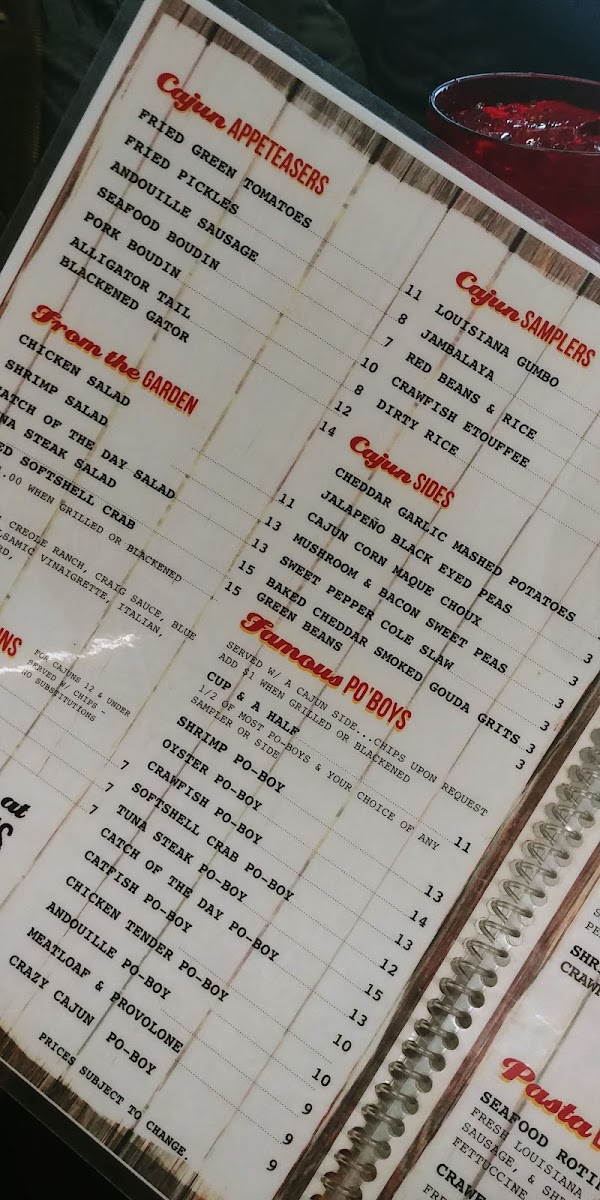 Cajun APPETEASERS
FRIED GREEN TOMATOES 11
FRIED PICKLES 8
ANDOUILLE SAUSAGE 7
SEAFOOD BOUDIN 10
PORK BOUDIN 8
ALLIGATOR TAIL 12
BLACKENED GATOR 14
From the GARDEN
CHICKEN SALAD 11
SHRIMP SALAD 13
CATCH OF THE DAY SALAD 13
STEAK SALAD 15
SOFTSHELL CRAB 15
WHEN GRILLED OR BLACKENED
CREOLE RANCH, CRAIG SAUCE, BLUE
VINAIGRETTE, ITALIAN,
FOR CAJUNS 12 & UNDER
SERVED W/ CHIPS -
NO SUBSTITUTIONS
7
7
7
at
Cajun SAMPLERS
LOUISIANA GUMBO
JAMBALAYA
RED BEANS & RICE
CRAWFISH ETOUFFEE
DIRTY RICE
Cajun SIDES
CHEDDAR GARLIC MASHED POTATOES
JALAPEÑO BLACK EYED PEAS 3
CAJUN CORN MAQUE CHOUX 3
MUSHROOM & BACON SWEET PEAS 3
SWEET PEPPER COLE SLAW 3
BAKED CHEDDAR SMOKED GOUDA GRITS 3
GREEN BEANS 3
Famous PO'BOYS
SERVED W/ A CAJUN SIDE...CHIPS UPON REQUEST
ADD $1 WHEN GRILLED OR BLACKENED
CUP & A HALF 11
1/2 OF MOST PO-BOYS & YOUR CHOICE OF ANY
SAMPLER OR SIDE
SHRIMP PO-BOY 13
OYSTER PO-BOY 14
CRAWFISH PO-BOY 13
SOFTSHELL CRAB PO-BOY 12
TUNA STEAK PO-BOY 15
CATCH OF THE DAY PO-BOY 13
CATFISH PO-BOY 10
CHICKEN TENDER PO-BOY 10
ANDOUILLE PO-BOY 9
MEATLOAF & PROVOLONE 9
CRAZY CAJUN PO-BOY 9
PRICES SUBJECT TO CHANGE
Pasta
SEAFOOD
FRESH LOUISIANA
SAUSAGE, &
FETTUCCINE